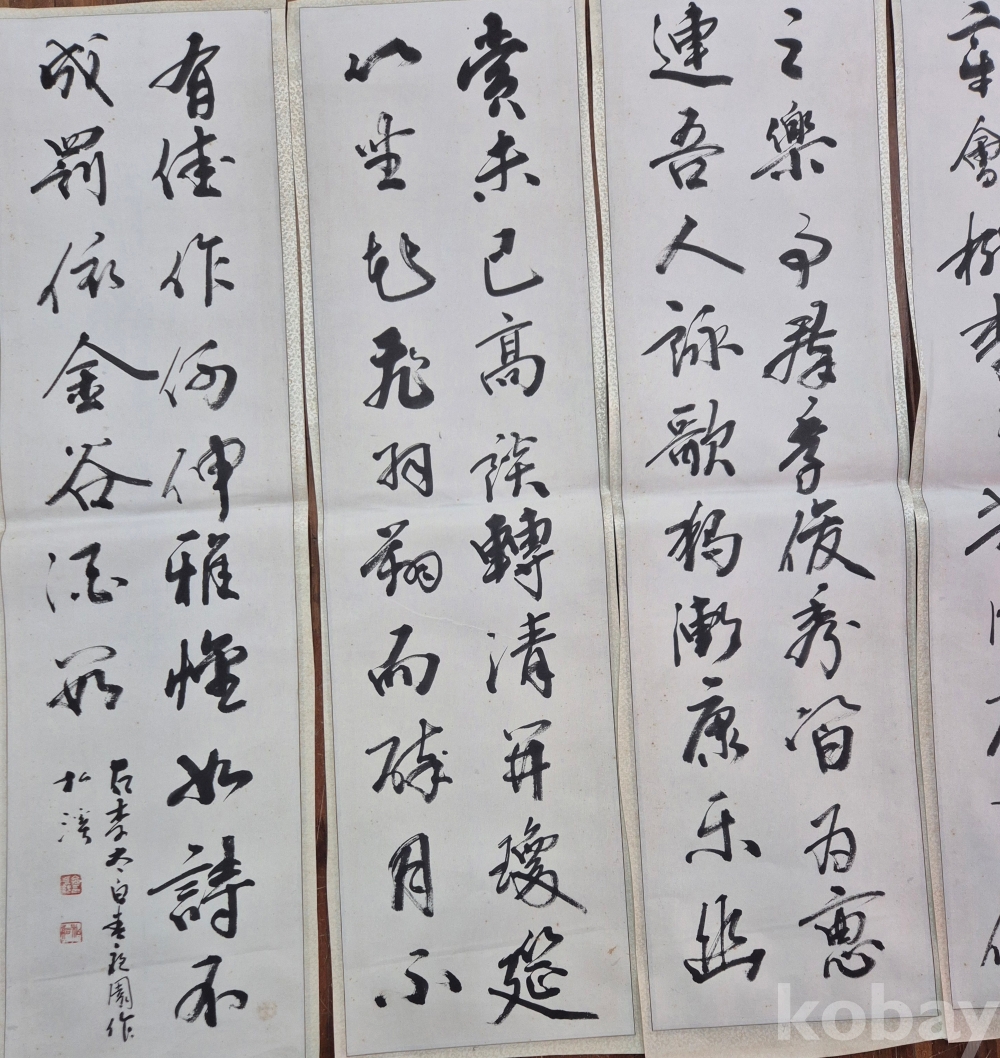 章會桃李
之樂事群季俊秀皆為惠
連吾人詠歌獨慚康乐幽
賞未已高談轉清開瓊筵
以坐花飛羽觴而醉月不
有佳作何伸雅懷如詩不
成罰依金谷酒數
右李太白春夜園作
溪
kobay